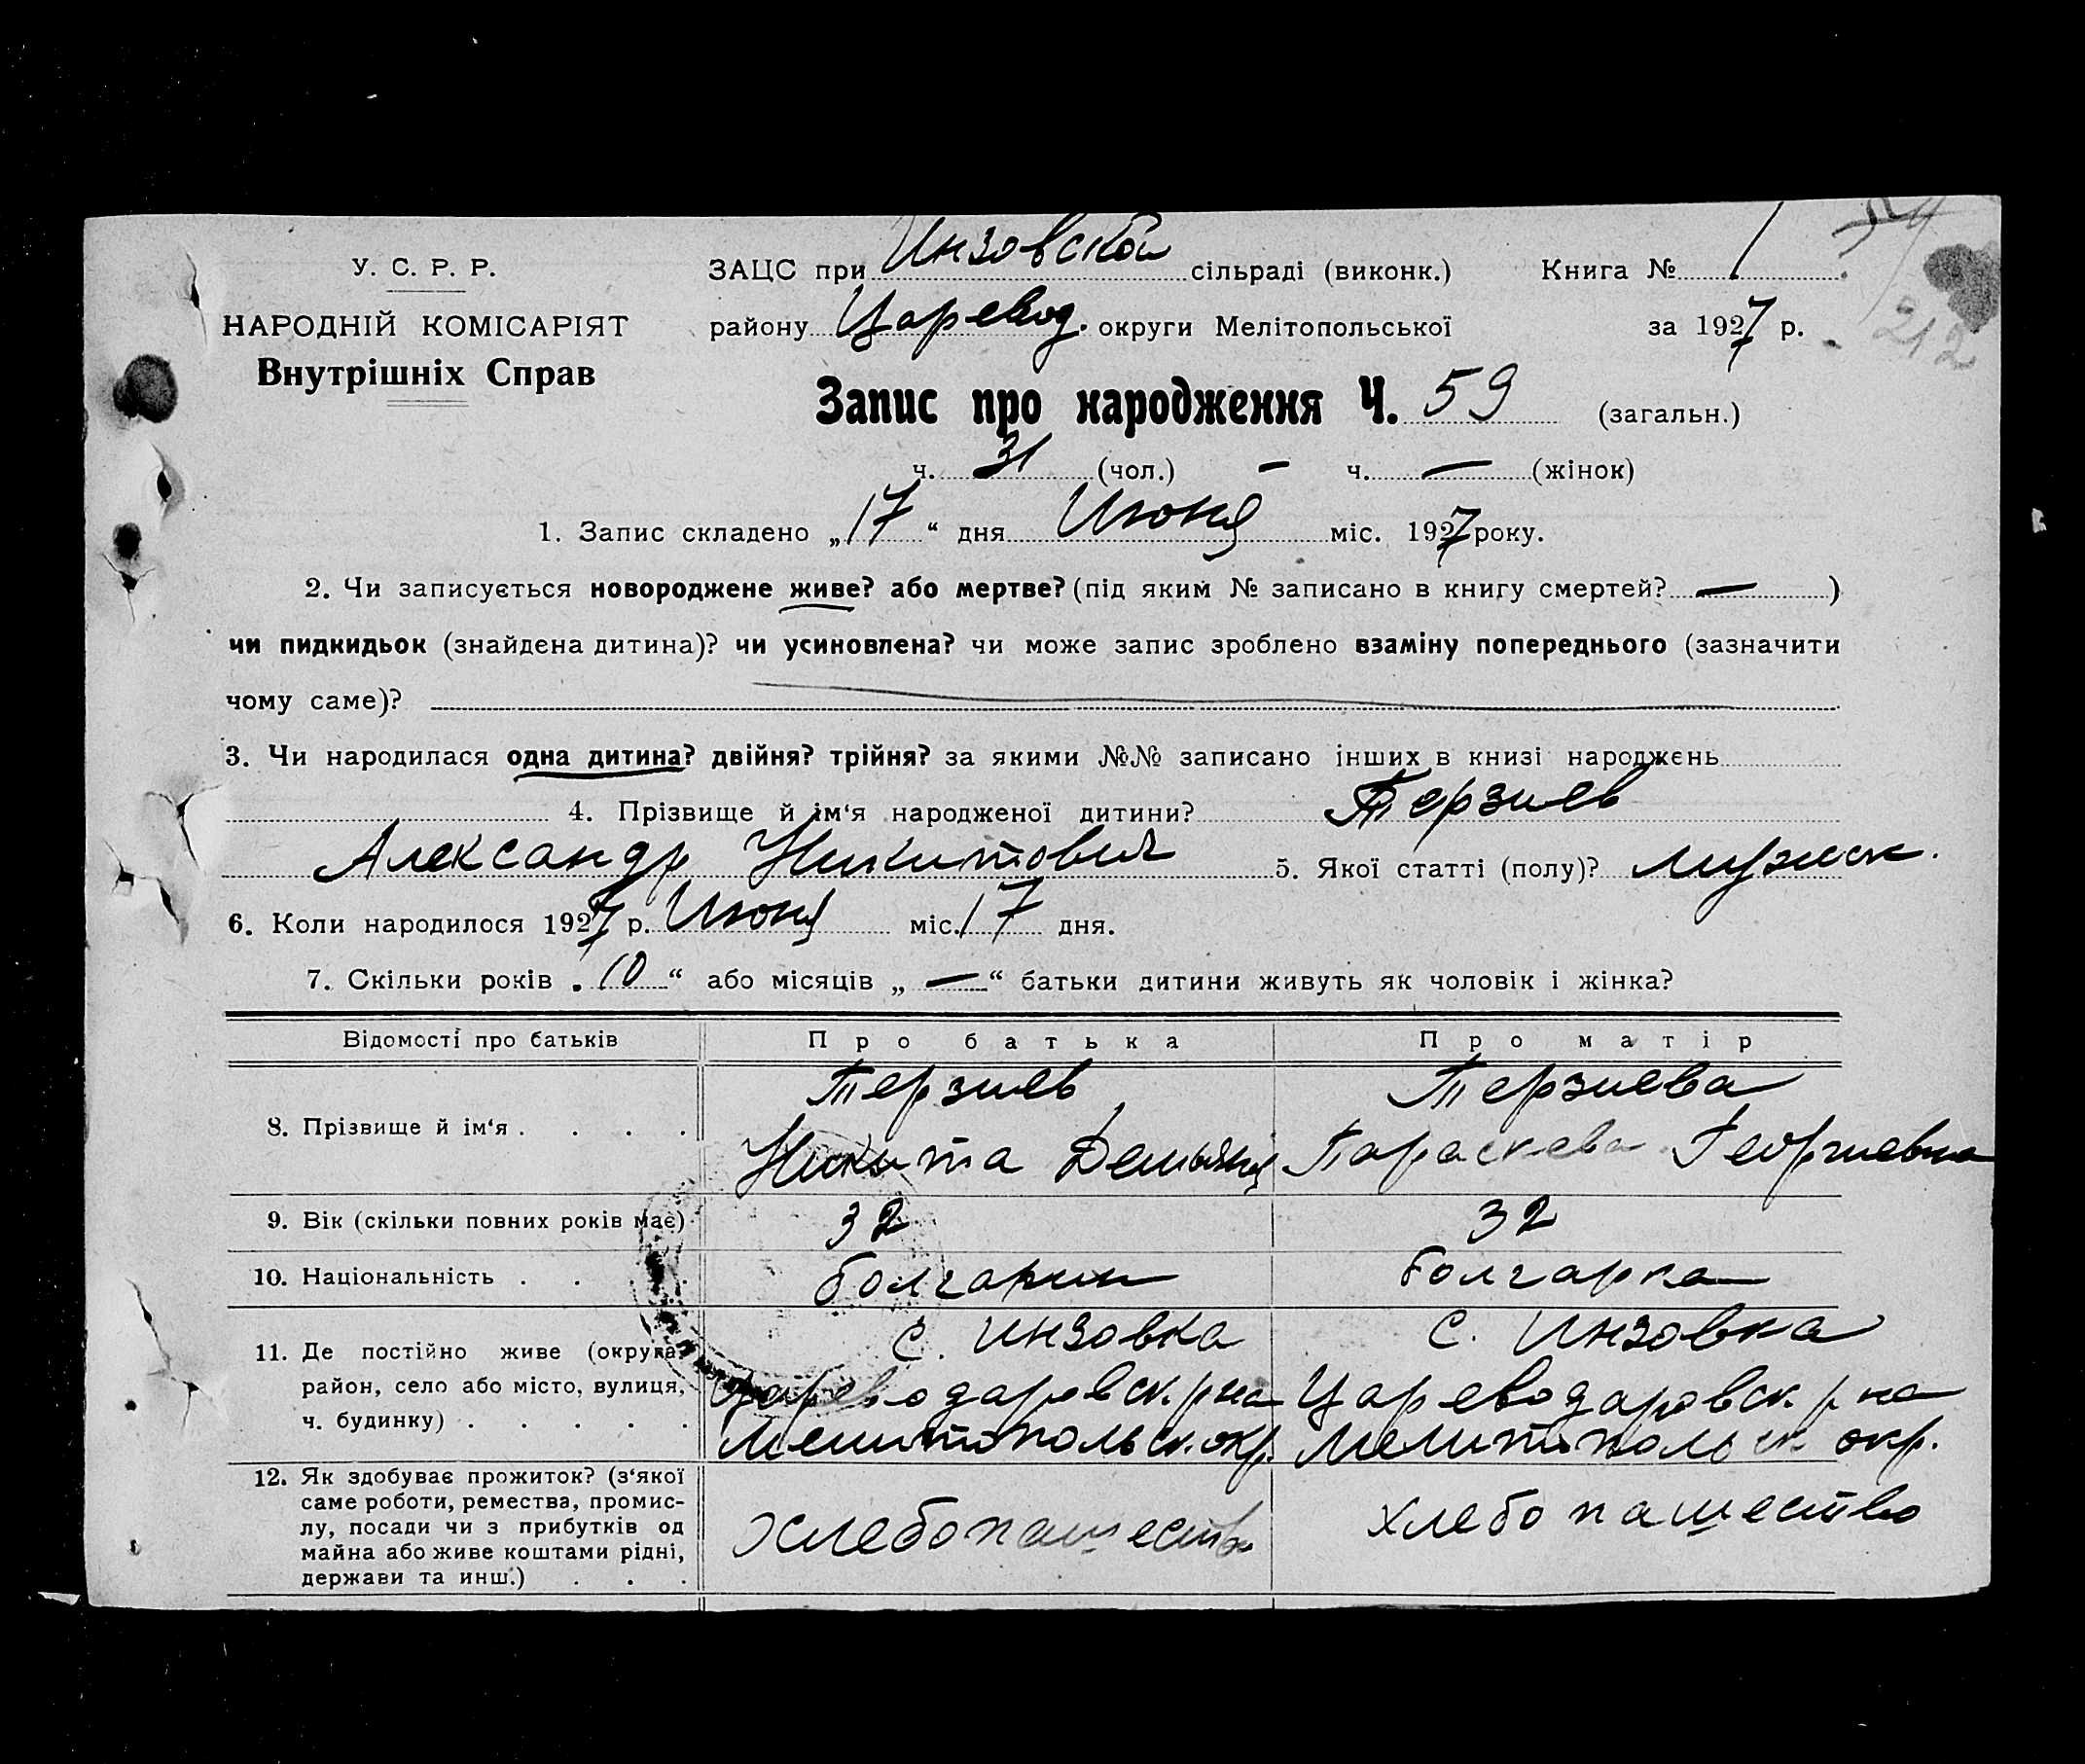 У. С. Р. Р.
НАРОДНІЙ КОМІСАРІЯТ
Внутрішніх Справ
ЗАЦС при Инзовской сільраді (виконк.) Книга № 1
району Царевод. округи Мелітопольської за 1927 р.
212
Запис про народження Ч. 59 (загальн.)
ч. 31 (чол.) — ч. — (жінок)
1. Запис складено „17“ дня Июня міс. 1927 року.
2. Чи записується новороджене живе? або мертве? (під яким № записано в книгу смертей? — )
чи пидкидьок (знайдена дитина)? чи усиновлена? чи може запис зроблено взаміну попереднього (зазначити
чому саме)?
3. Чи народилася одна дитина? двійня? трійня? за якими №№ записано інших в книзі народжень
4. Прізвище й ім‘я народженої дитини? Терзиев
Александр Никитович 5. Якої статті (полу)? мужск.
6. Коли народилося 1927 р. Июня міс. 17 дня.
7. Скільки років „10“ або місяців „—“ батьки дитини живуть як чоловік і жінка?
Відомості про батьків Про батька Про матір
8. Прізвище й ім‘я . . . . Терзиев Терзиева
Никита Демьян Параскева Георгиевна
9. Вік (скільки повних років має) 32 32
10. Національність . . . . болгарин болгарка
11. Де постійно живе (округа, с. Инзовка с. Инзовка
район, село або місто, вулиця, Цареводаровск. р на Цареводаровск. р на
ч. будинку) . . . . . Мелитопольск. окр. Мелитопольск окр.
12. Як здобуває прожиток? (з‘якої
саме роботи, ремества, промис-
лу, посади чи з прибутків од хлебопашество хлебопашество
майна або живе коштами рідні,
держави та инш.) . . .